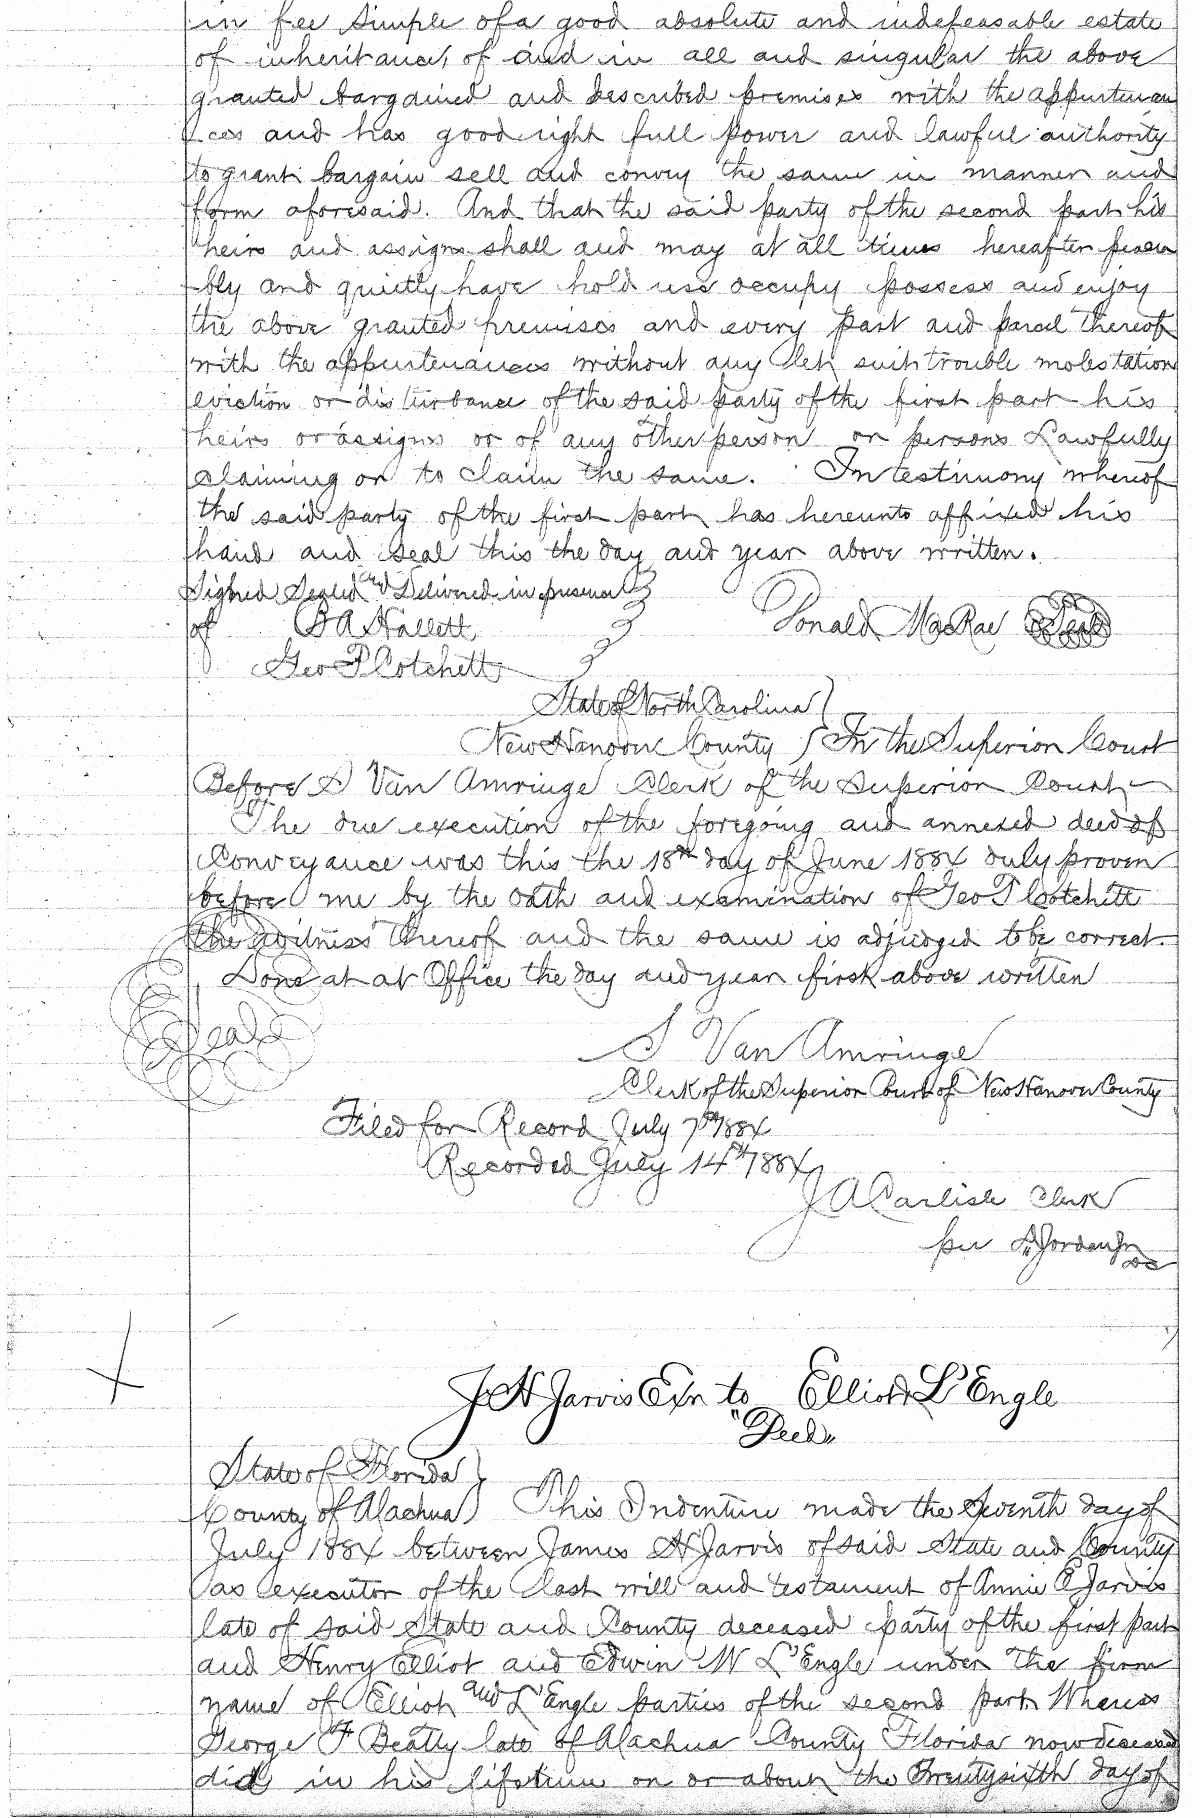 in fee simple of a good absolute and indefeasable estate
of inheritance, of and in all and singular the above
granted bargained and described premises with the appurtenan
ces and has good right full power and lawful authority
to grant bargain sell and convey the same in manner and
form aforesaid. And that the said party of the second part his
heirs and assigns shall and may at all times hereafter peacea
bly and quietly have hold use occupy possess and enjoy
the above granted premises and every part and parcel thereof
with the appurtenances without any let suit trouble molestation
eviction or disturbance of the said party of the first part his
heirs or assigns or of any other person or persons Lawfully
claiming or to claim the same. In testimony whereof
the said party of the first part has hereunto affixed his
hand and seal this the day and year above written.
Signed Sealed and Delivered in presence
of B A Hallett Donald MacRae Seal
Geo P Cotchett
State of North Carolina
New Hanover County In the Superior Court
Before S Van Amringe Clerk of the Superior Court
The due execution of the foregoing and annexed deed of
Conveyance was this the 18th day of June 1884 duly proven
before me by the oath and examination of Geo P Cotchett
the witness thereof and the same is adjudged to be correct.
Done at at Office the day and year first above written
Seal
S Van Amringe
Clerk of the Superior Court of New Hanover County
Filed for Record July 7th 1884
Recorded July 14th 1884
J A Carlisle Clerk
per Jordan Jr
DC
J H Jarvis Exr to Elliot & L'Engle
"Deed"
State of Florida
County of Alachua This Indenture made the Seventh day of
July 1884 between James H Jarvis of said State and County
as executor of the last will and testament of Annie E Jarvis
late of said State and County deceased party of the first part
and Henry Elliot and Edwin W L'Engle under the firm
name of Elliot and L'Engle parties of the second part Whereas
George F Beatty late of Alachua County Florida now deceased
did in his lifetime on or about the Twentysixth day of